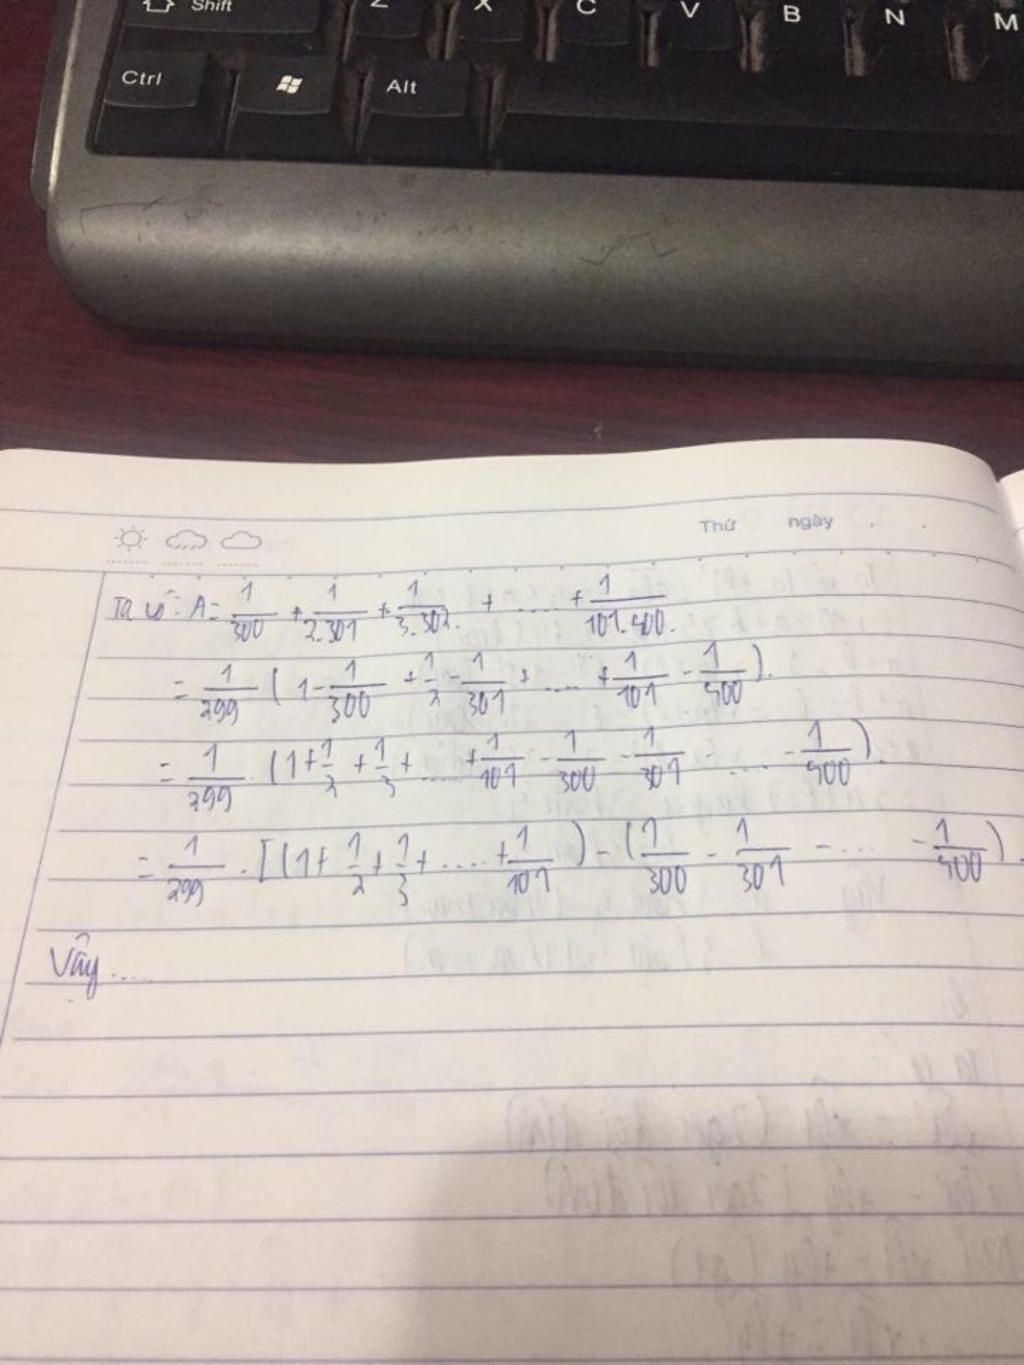 Shift Z X C V B N M
Ctrl Alt
Thứ ngày
Ta có: A= 1/300 + 1/2.301 + 1/3.302. + .... + 1/101.400.
= 1/299 ( 1 - 1/300 + 1/2 - 1/301 + .... + 1/101 - 1/400 ).
= 1/299 . ( 1 + 1/2 + 1/3 + .... + 1/101 - 1/300 - 1/301 - .... - 1/400 ).
= 1/299 . [ ( 1 + 1/2 + 1/3 + .... + 1/101 ) - ( 1/300 - 1/301 - .... - 1/400 ) .
Vậy ....